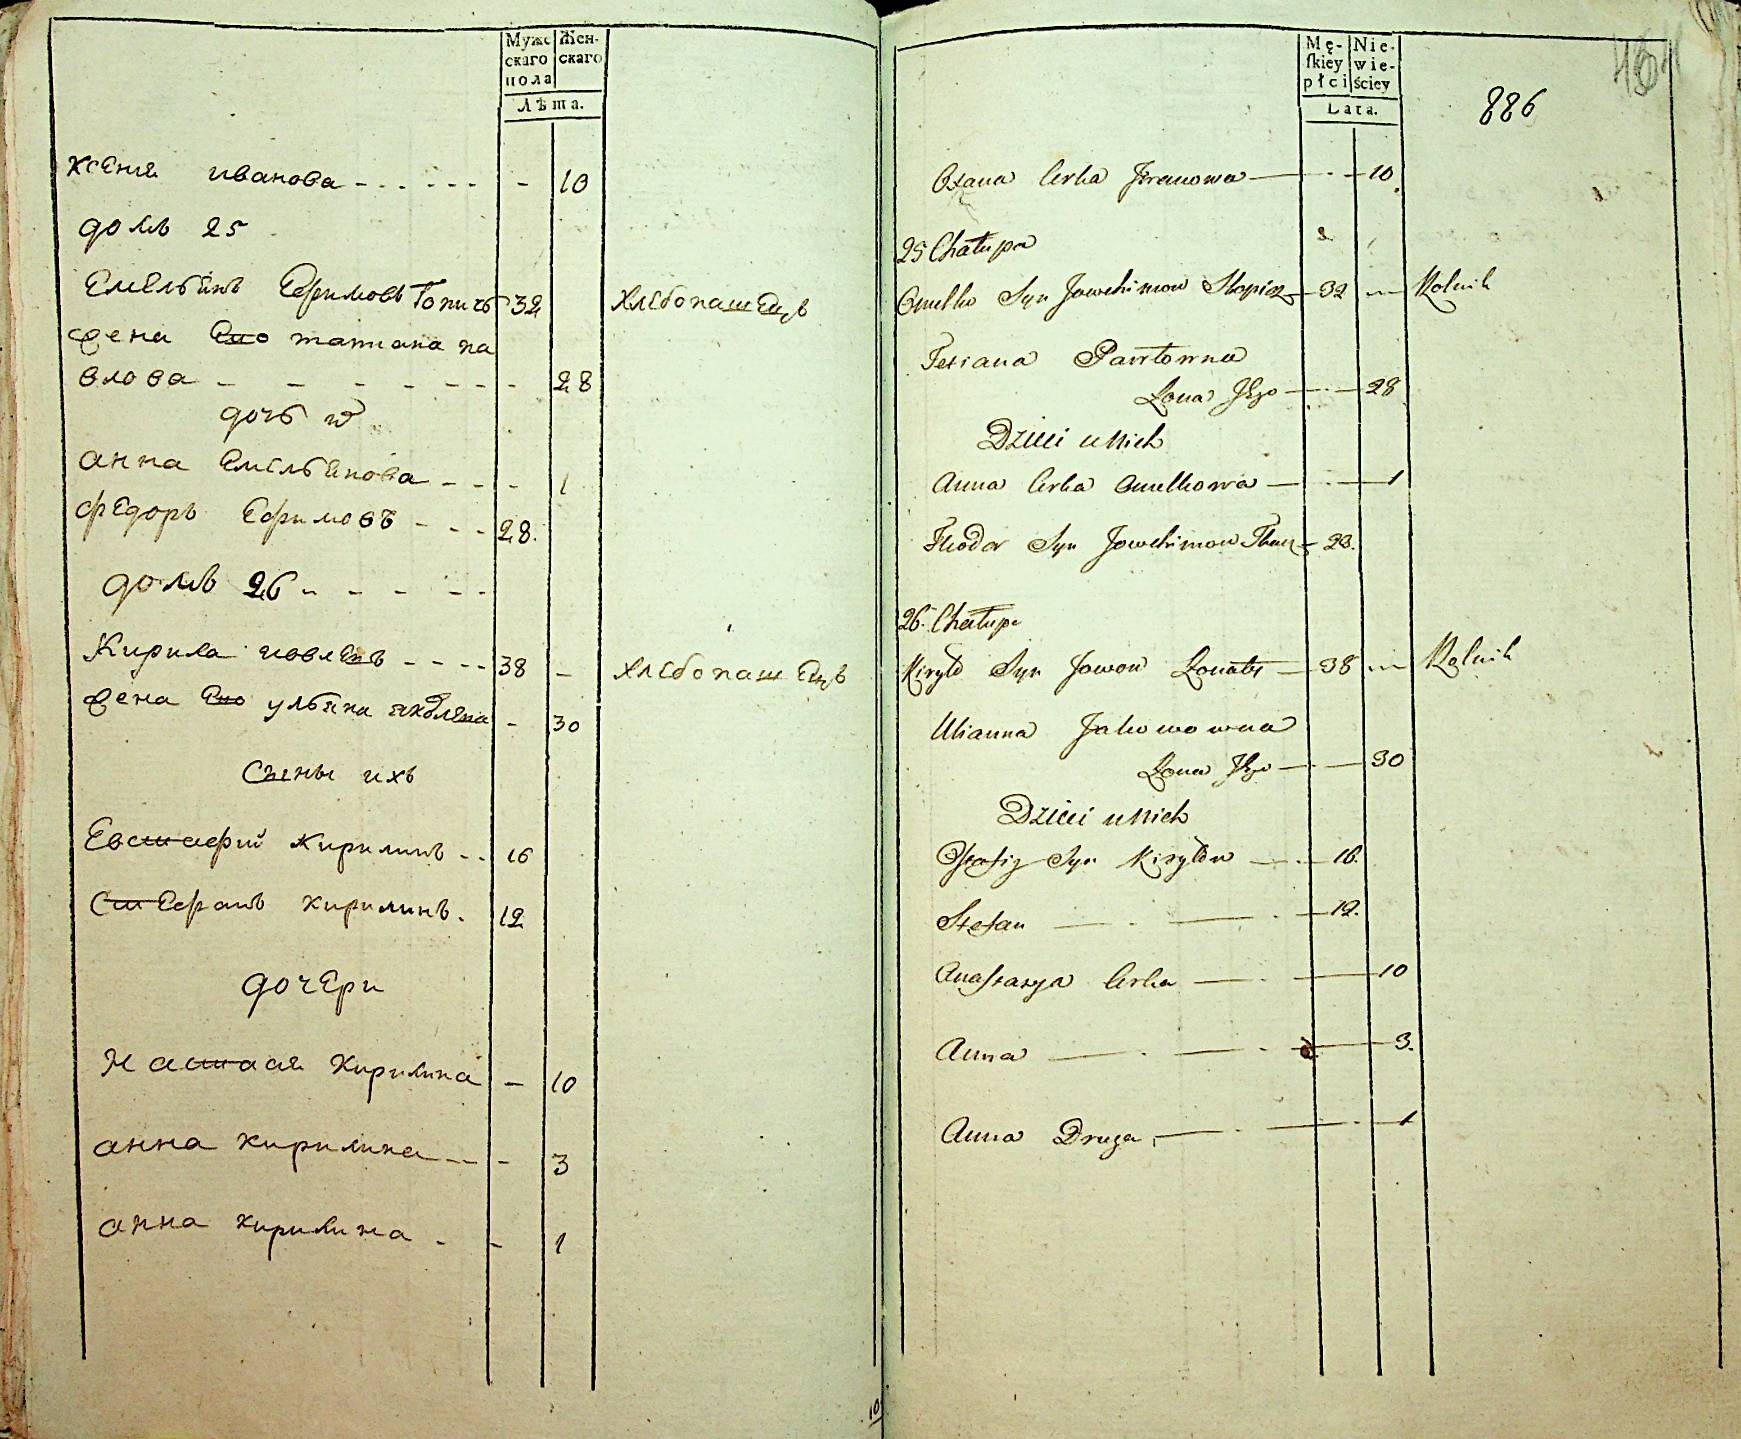 Муже Жен-
скаго скаго
пола
Лѣта.
Ксения иванова - - - - - - - 10
домъ 25
Емельянъ Ефимовъ 32 хлебопашецъ
жена Ево татиана па
влова - - - - - - - 28
дочь
анна Емельянова - - - 1
федоръ Ефимовъ - - - 28.
домъ 26 - - - - -
Кирила иовлевъ - - - - 38 - хлебопашецъ
жена Ево ульяна яковлена - 30
Сыны ихъ
Евстафий Кирилинъ - - 16
Стефанъ кирилинъ. 12
дочери
Настася Кирилина - 10
анна кирилина - - - 3
анна кирилина - - 1
10
Mę- Nie-
ſkiey wie-
płci ściey
Lata.
886
Corka Jwanowa — 10.
25 Chałupa
Omelko Syn Jowchimow — 32 — Rolnik
Tetiana Pawłowna
Zona Jego — 28
Dzieci u Nich
Anna Corka Omelkowa — 1
Theodor Syn Jowchimow — 28.
26. Chałupa
Kiryło Syn Jowow — 38 — Rolnik
Ulianna Jakowowna
Zona Jego — 30
Dzieci u Nich
Syn Kiryłow — 16.
Stefan — 12.
Anastasya Corka — 10
Anna — 3.
Anna Druga, — 1